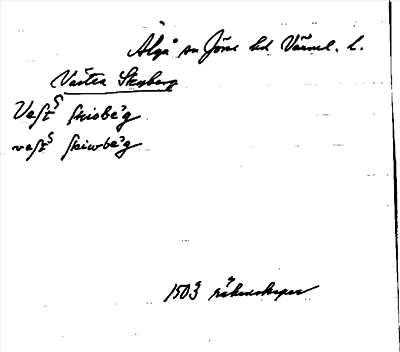 Älgå sn Jösse hd Värml. l.
Västra Skyberg
Vest skiobe'g
vest skiwbe'g
1503 räkenskaper